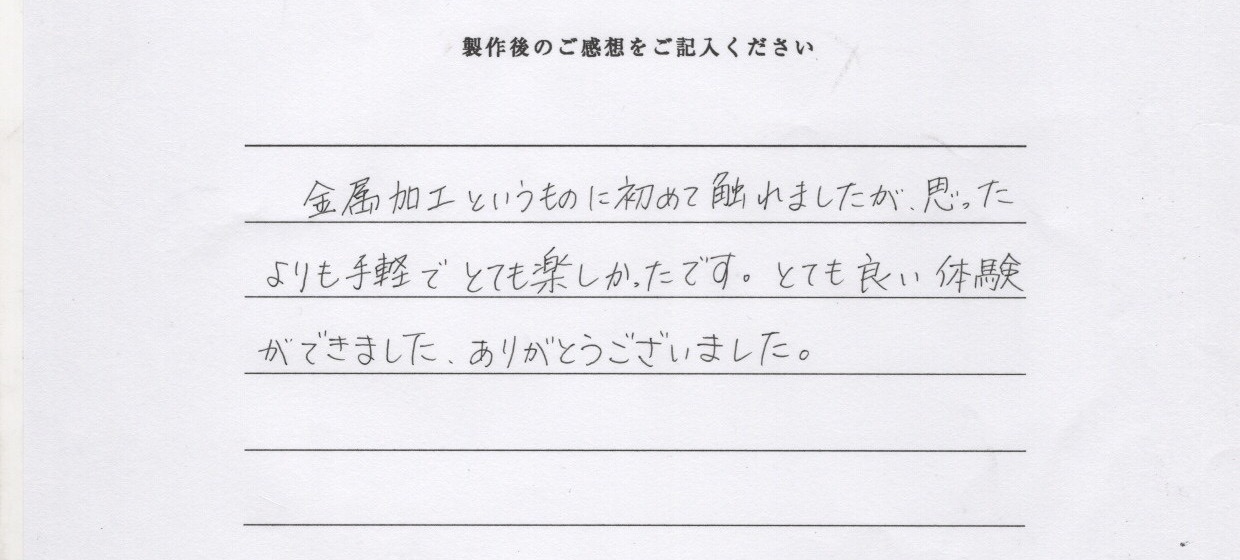 製作後のご感想をご記入ください
金属加工というものに初めて触れましたが、思った
よりも手軽でとても楽しかったです。とても良い体験
ができました、ありがとうございました。